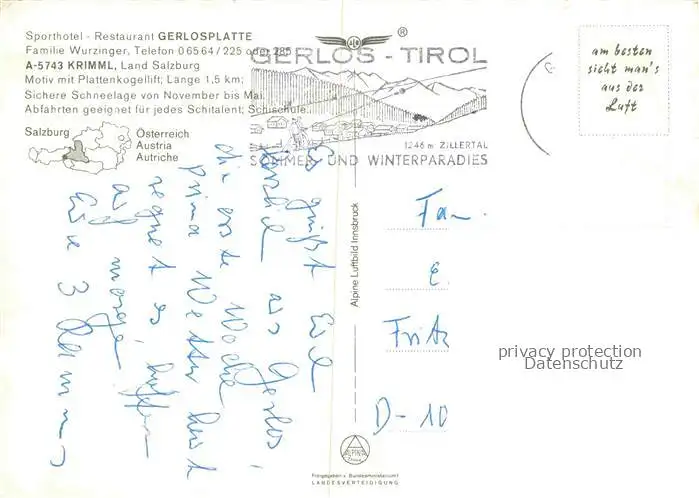 Sporthotel - Restaurant GERLOSPLATTE
Familie Wurzinger, Telefon 0 65 64 / 225 oder 285
A-5743 KRIMML, Land Salzburg
Motiv mit Plattenkogellift; Länge 1,5 km;
Sichere Schneelage von November bis Mai.
Abfahrten geeignet für jedes Schitalent; Schischule.
Salzburg
Österreich
Austria
Autriche
®
GERLOS - TIROL
1246 m ZILLERTAL
SOMMER- UND WINTERPARADIES
am besten
sieht man's
aus der
Luft
Es grüßt Euch
herzlich aus Gerlos,
die erste Woche
prima Wetter heut
regnet es, hoffen
auf morgen
Eure 3
Alpine Luftbild Innsbruck
Fam.
E.
Fritz
D-10
privacy protection
Datenschutz
ALPINE
Freigegeben v. Bundesministerium f.
LANDESVERTEIDIGUNG